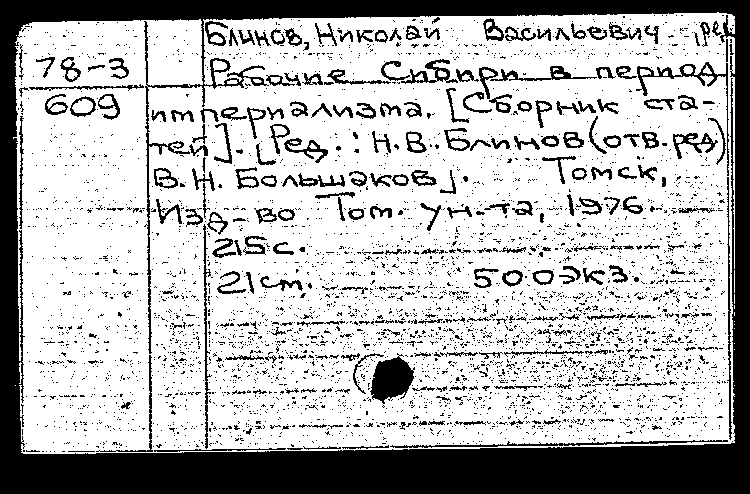 Блинов, Николай Васильевич, ред.
78-3 Рабочие Сибири в период
609 империализма. [Сборник ста-
тей]. [Ред.: Н.В. Блинов (отв. ред)
В.Н. Большаков]. Томск,
Изд-во Том. ун-та, 1976.
215 с.
21 см. 500 экз.